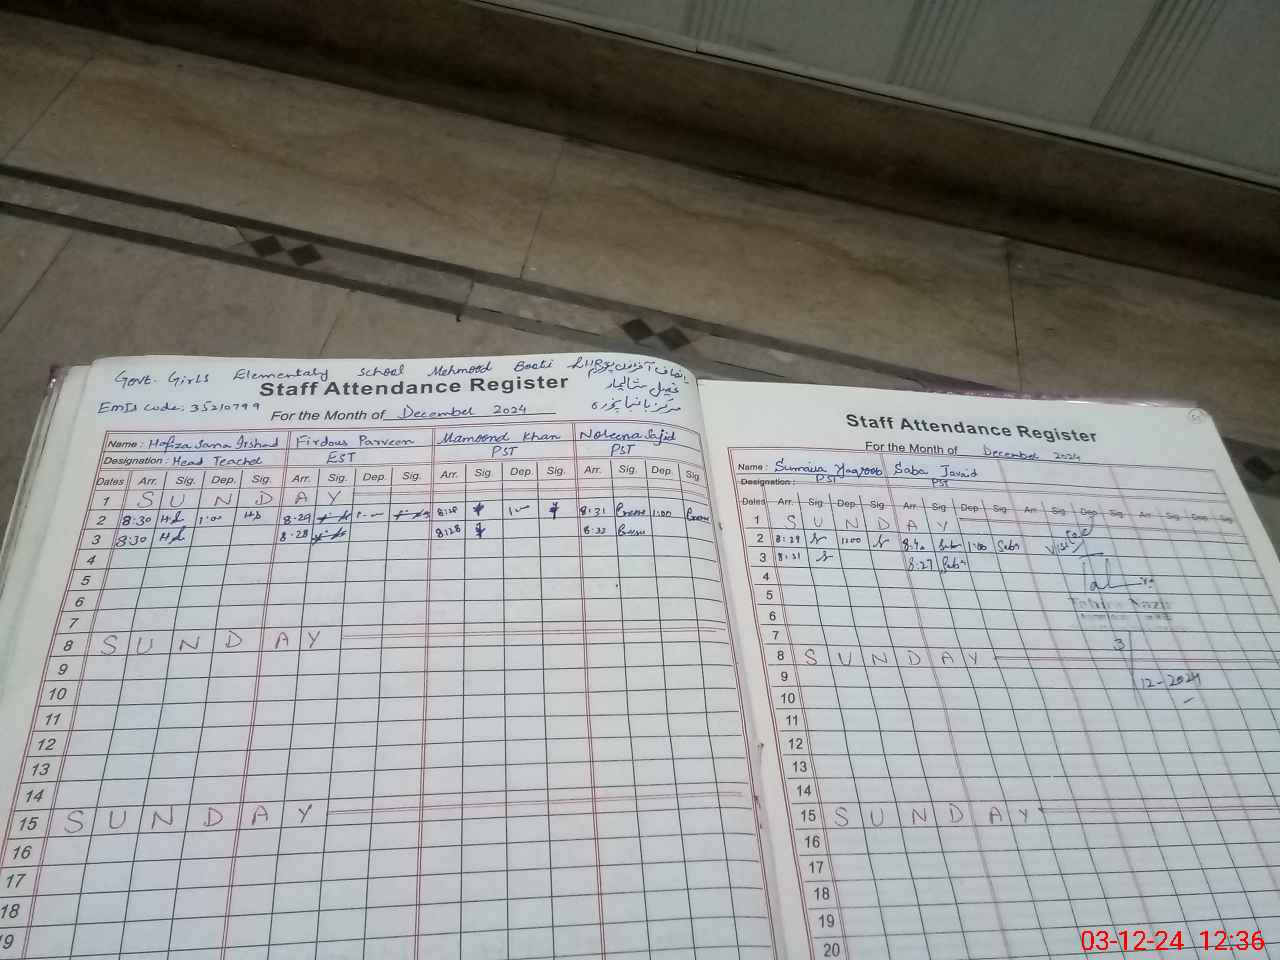 Govt. Girls Elementary School Mehmood Booti LHR
Staff Attendance Register
EmIs code: 35210799
For the Month of December 2024
تحصیل شالیمار
Name: Hafiza Sana Irshad Firdous Parveen Mamoona Khan Noleena Sajid
Designation: Head Teacher EST PST PST
Dates Arr. Sig. Dep. Sig. Arr. Sig. Dep. Sig. Arr. Sig. Dep. Sig. Arr. Sig. Dep. Sig
1 S U N D A Y
2 8:30 1:00 8:29 8:28 8:31 1:00
3 8:30 8:28 8:28
4
5
6
7
8 S U N D A Y
9
10
11
12
13
14
15 S U N D A Y
16
17
18
19
Staff Attendance Register
For the Month of December 2024
Name: Sumaira Yaqoob Saba Javaid
Designation: PST PST
Dates Arr. Sig Dep Sig Arr. Sig Dep Sig Arr Sig Dep Sig Arr. Sig Dep. Sig
1 S U N D A Y
2 8:29 1:00 1:00 Saba
3 8:31 8:27 Saba
4
5
6
7
8 S U N D A Y
9
10
11
12
13
14
15 S U N D A Y
16
17
18
19
20
Visited
Tahira Nazir
3
12-2024
03-12-24 12:36